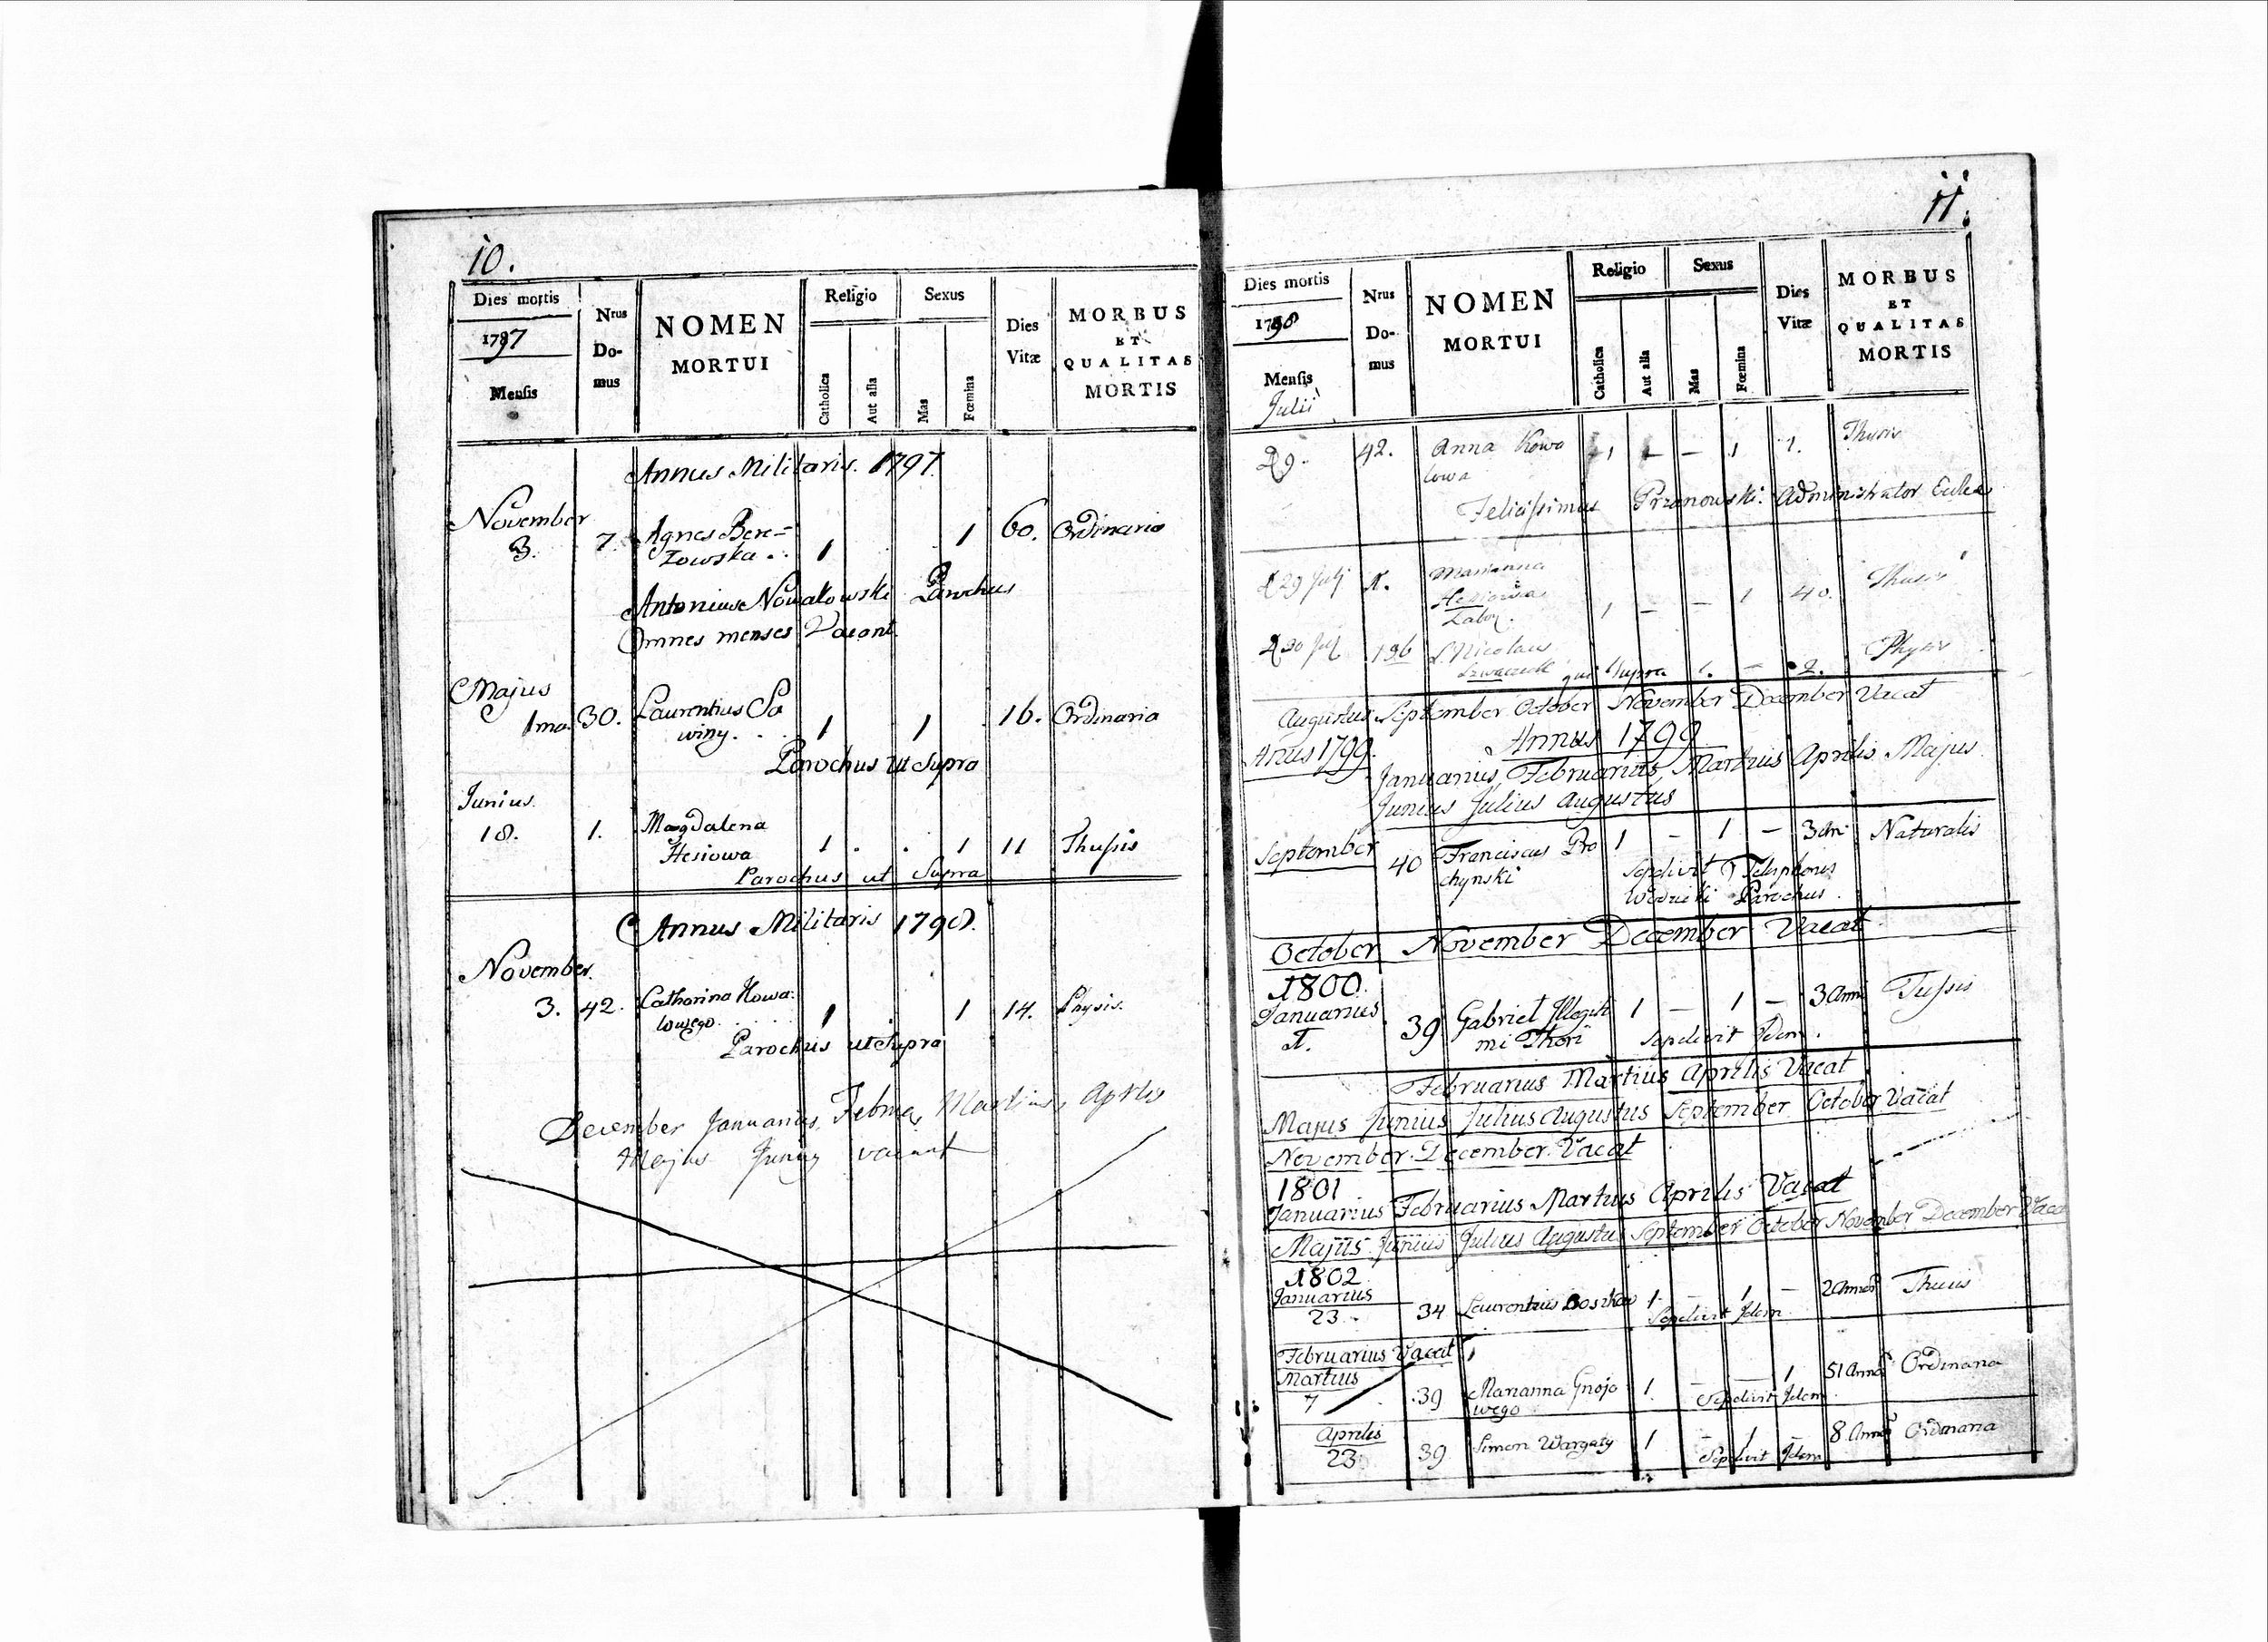 10.
Dies mortis
1797
Mensis
Nrus
Do-
mus
NOMEN
MORTUI
Religio
Catholica
Aut alia
Sexus
Mas
Fœmina
Dies
Vitæ
MORBUS
ET
QUALITAS
MORTIS
Annus Militaris. 1797.
November
3. 7. Agnes Bere= 1 1 60. Ordinaria
zowska.
Antonius Nowakowski Parochus
Omnes menses Vacant.
Majus
1ma. 30. Laurentius Sa 1 1 16. Ordinaria
winy.
Parochus ut Supra
Junius.
18. 1. Magdalena
Hesiowa 1 . . 1 11 Thussis
Parochus ut Supra
Annus Militaris 1798.
November.
3. 42. Catharina Kowa: 1 1 14. Physis.
lowego.
Parochus ut Supra
December Januarius, Martius, Aprlis
Majus vacant
11.
Dies mortis
1798
Mensis
Julii
Nrus
Do-
mus
NOMEN
MORTUI
Religio
Catholica
Aut alia
Sexus
Mas
Fœmina
Dies
Vitæ
MORBUS
ET
QUALITAS
MORTIS
29. 42. Anna Kowa 1 1.
lowa
Felicissimus Administrator
29 Julj Marianna
Hesiowa 1 — — 1 40.
30 Nicolaus
Supra 1. — 2.
Augustus September October November December Vacat
Anus 1799. Annus 1799
Januarius, Februarius, Martius Aprilis Majus
Junius Julius Augustus
September 40 Franciscus Pro 1 — 1 — 3 An: Naturalis
chynski Sepelivit
Parochus.
October November December Vacat
1800.
Januarius 39 Gabriel Illegiti 1 — 1 — 3 Anni Tussis
mi Thori Sepelivit Idem.
Februarius Martius Aprilis Vacat
Majus Junius Julius Augustus September October Vacat
November December Vacat
1801
Januarius Februarius Martius Aprilis Vacat
Majus Junius Julius Augustus September October November December Vacat
1802
Januarius
23. 34 Laurentius 1 — 1 —
Sepelivit Idem
Februarius Vacat
Martius
7 39 Marianna Gnojo 1. — — 1 51 Ordinaria
wego Sepelivit Idem
Aprilis
23. 39 Simon Wargaty 1 — 1 — 8 Ordinaria
Sepelivit Idem